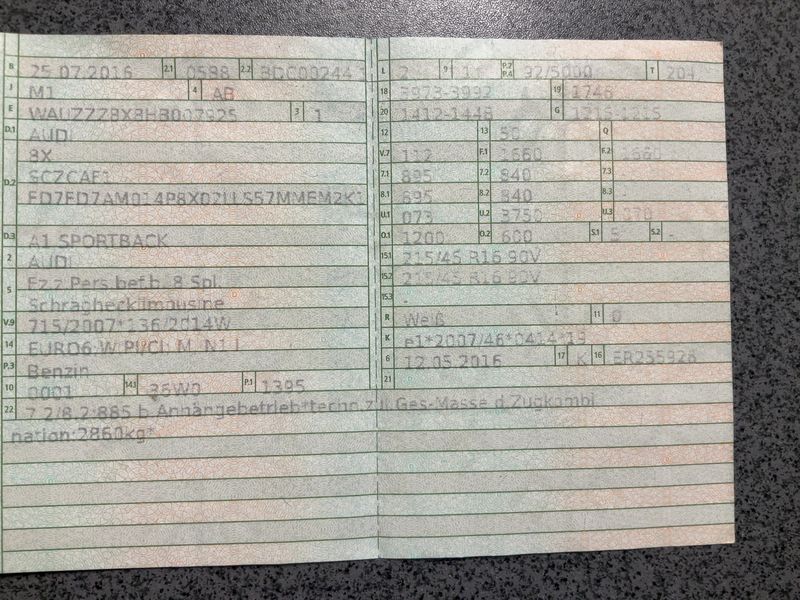 B 25.07.2016 2.1 0588 2.2 BDC00244 L 2 9 1 P.2 P.4 92/5000 T 204
J M1 4 AB 18 3973-3992 19 1746
E WAUZZZ8X8HB007925 3 1 20 1412-1448 G 1215-1215
D.1 AUDI 12 - 13 50 Q
8X V.7 112 F.1 1660 F.2 1660
D.2 SCZCAF1 7.1 895 7.2 840 7.3
8.1 895 8.2 840 8.3
U.1 073 U.2 3750 U.3 070
D.3 A1 SPORTBACK O.1 1200 O.2 600 S.1 5 S.2 -
2 AUDI 15.1 215/45 R16 90V
5 Fz.z.Pers.bef.b. 8 Spl. 15.2 215/45 R16 90V
Schräghecklimousine 15.3 -
V.9 715/2007*136/2014W R Weiß 11 0
14 EURO6 W PI/CI M, N1 I K e1*2007/46*0414*19
P.3 Benzin 6 12.05.2016 17 K 16 ER255928
10 0001 14.1 36W0 P.1 1395 21
22 7.2/8.2:885 b.Anhängebetrieb*techn.z.l.Ges-Masse d.Zugkombi
nation:2860kg*